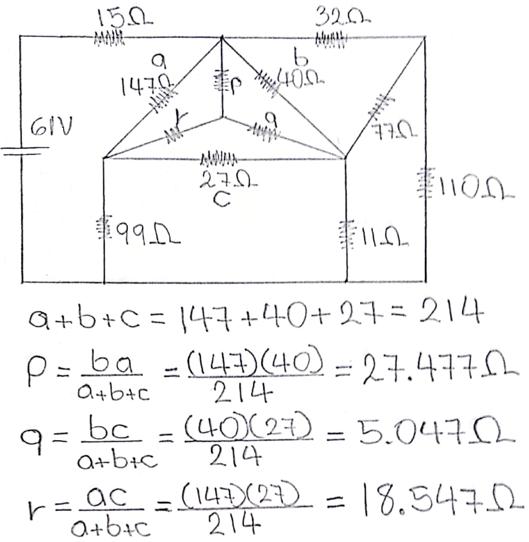 15Ω 32Ω
a b
147Ω p 40Ω
61V r q 77Ω
27Ω 110Ω
c
99Ω 11Ω
a+b+c = 147+40+27 = 214
p = ba/a+b+c = (147)(40)/214 = 27.477Ω
q = bc/a+b+c = (40)(27)/214 = 5.047Ω
r = ac/a+b+c = (147)(27)/214 = 18.547Ω